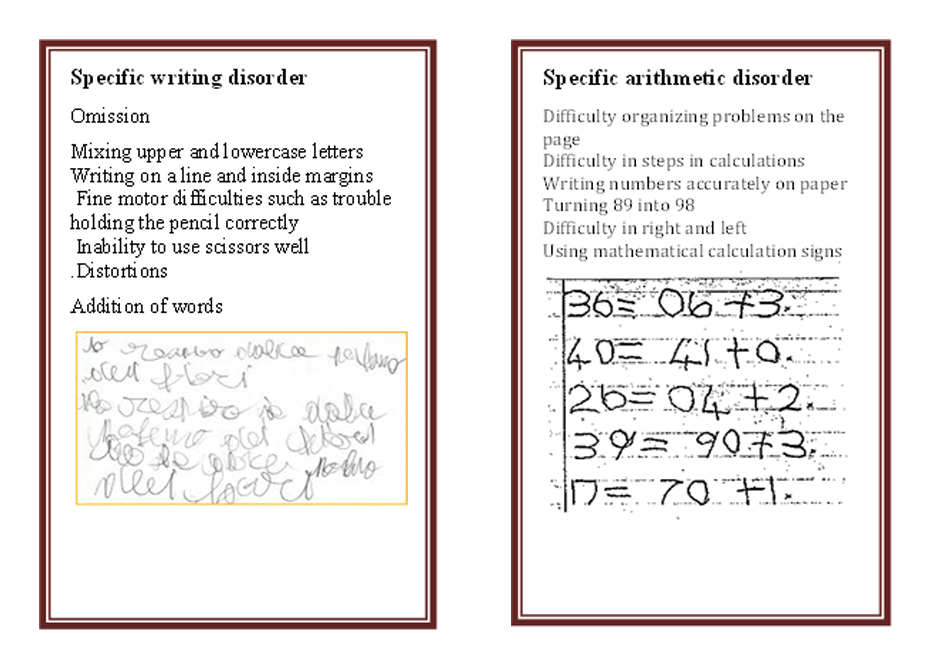 Specific writing disorder
Omission
Mixing upper and lowercase letters
Writing on a line and inside margins
Fine motor difficulties such as trouble
holding the pencil correctly
Inability to use scissors well
.Distortions
Addition of words
io respiro dolce profumo
dei fiori
io dolce
dei
dolce
dei fiori
Specific arithmetic disorder
Difficulty organizing problems on the
page
Difficulty in steps in calculations
Writing numbers accurately on paper
Turning 89 into 98
Difficulty in right and left
Using mathematical calculation signs
36= 06 +3.
40= 41+0.
26= 04 +2.
39= 90+3.
17= 70 +1.